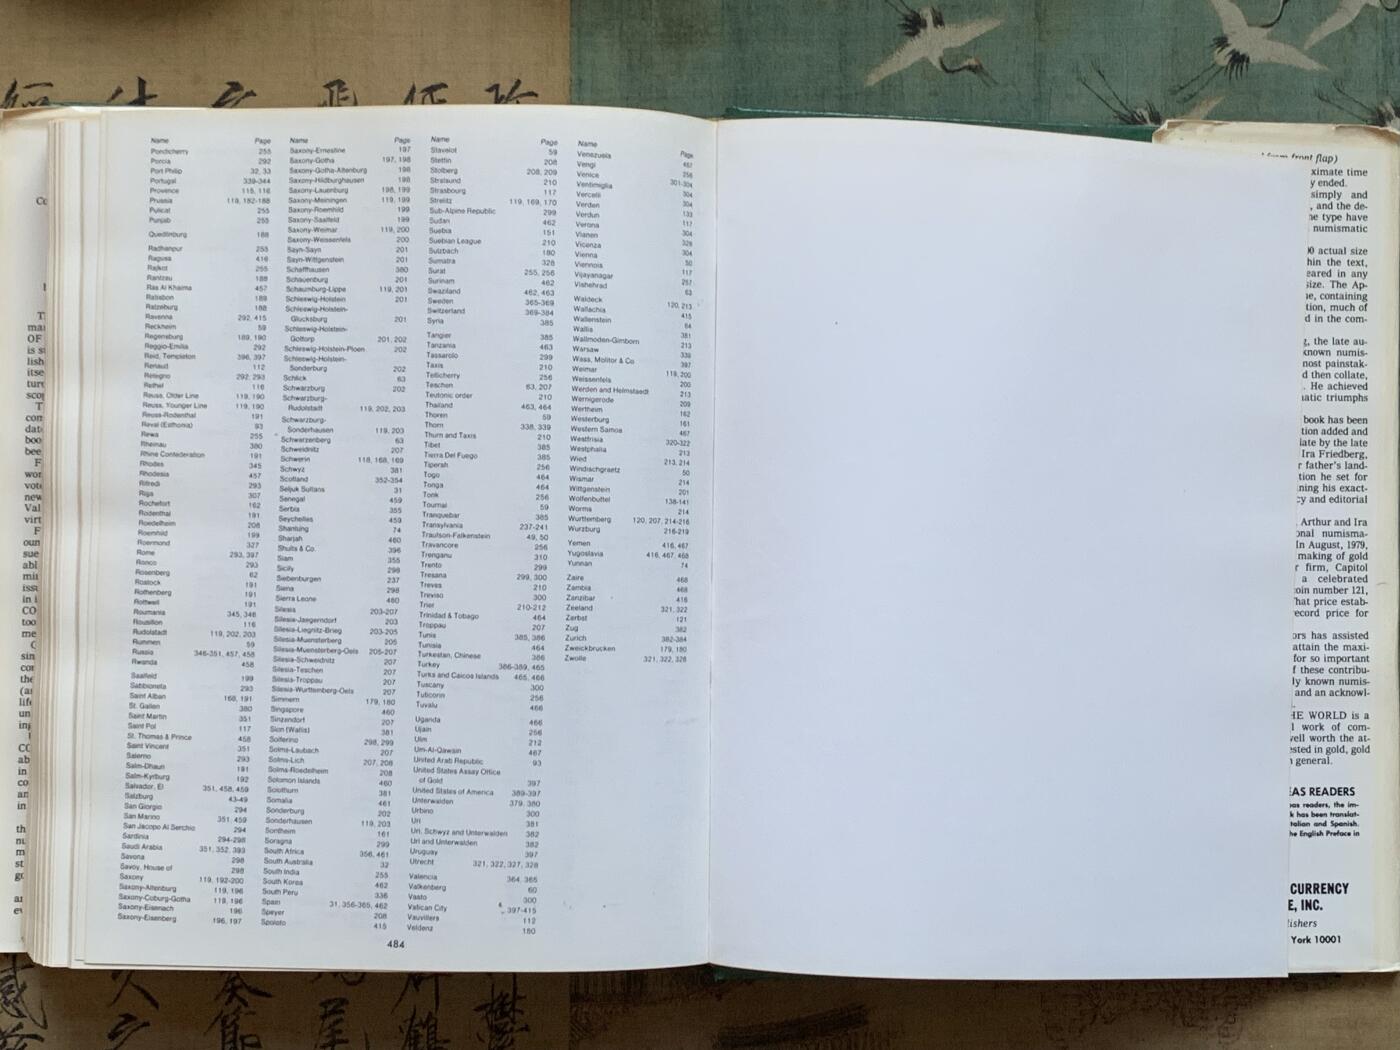 Name Page
Pondicherry 255
Porcia 292
Port Philip 32, 33
Portugal 339-344
Provence 115, 116
Prussia 119, 182-188
Pulicat 255
Punjab 255
Quedlinburg 188
Radhanpur 255
Ragusa 416
Rajkot 255
Rantzau 188
Ras Al Khaima 457
Ratisbon 189
Ratzeburg 188
Ravenna 292, 415
Reckheim 59
Regensburg 189, 190
Reggio-Emilia 292
Reid, Templeton 396, 397
Renaud 112
Retegno 292, 293
Rethel 116
Reuss, Older Line 119, 190
Reuss, Younger Line 119, 190
Reuss-Rodenthal 191
Reval (Esthonia) 93
Rewa 255
Rheinau 380
Rhine Confederation 191
Rhodes 345
Rhodesia 457
Rifredi 293
Riga 307
Rochefort 162
Rodenthal 191
Roedelheim 208
Roemhild 199
Roermond 327
Rome 293, 397
Ronco 293
Rosenberg 62
Rostock 191
Rothenberg 191
Rottweil 191
Roumania 345, 346
Rousillon 116
Rudolstadt 119, 202, 203
Rummen 59
Russia 346-351, 457, 458
Rwanda 458
Saalfeld 199
Sabbioneta 293
Saint Alban 168, 191
St. Gallen 380
Saint Martin 351
Saint Pol 117
St. Thomas & Prince 458
Saint Vincent 351
Salerno 293
Salm-Dhaun 191
Salm-Kyrburg 192
Salvador, El 351, 458, 459
Salzburg 43-49
San Giorgio 294
San Marino 351, 459
San Jacopo Al Serchio 294
Sardinia 294-298
Saudi Arabia 351, 352, 393
Savona 298
Savoy, House of 298
Saxony 119, 192-200
Saxony-Altenburg 119, 196
Saxony-Coburg-Gotha 119, 196
Saxony-Eisenach 196
Saxony-Eisenberg 196, 197
Name Page
Saxony-Ernestine 197
Saxony-Gotha 197, 198
Saxony-Gotha-Altenburg 198
Saxony-Hildburghausen 198
Saxony-Lauenburg 198, 199
Saxony-Meiningen 119, 199
Saxony-Roemhild 199
Saxony-Saalfeld 199
Saxony-Weimar 119, 200
Saxony-Weissenfels 200
Sayn-Sayn 201
Sayn-Wittgenstein 201
Schaffhausen 380
Schauenburg 201
Schaumburg-Lippe 119, 201
Schleswig-Holstein 201
Schleswig-Holstein-
Glucksburg 201
Schleswig-Holstein-
Gottorp 201, 202
Schleswig-Holstein-Ploen 202
Schleswig-Holstein-
Sonderburg 202
Schlick 63
Schwarzburg 202
Schwarzburg-
Rudolstadt 119, 202, 203
Schwarzburg-
Sonderhausen 119, 203
Schwarzenberg 63
Schweidnitz 207
Schwerin 118, 168, 169
Schwyz 381
Scotland 352-354
Seljuk Sultans 31
Senegal 459
Serbia 355
Seychelles 459
Shantung 74
Sharjah 460
Shults & Co. 396
Siam 355
Sicily 298
Siebenburgen 237
Siena 298
Sierra Leone 460
Silesia 203-207
Silesia-Jaegerndorf 203
Silesia-Liegnitz-Brieg 203-205
Silesia-Muensterberg 205
Silesia-Muensterberg-Oels 205-207
Silesia-Schweidnitz 207
Silesia-Teschen 207
Silesia-Troppau 207
Silesia-Wurttemberg-Oels 207
Simmern 179, 180
Singapore 460
Sinzendorf 207
Sion (Wallis) 381
Solferino 298, 299
Solms-Laubach 207
Solms-Lich 207, 208
Solms-Roedelheim 208
Solomon Islands 460
Solothurn 381
Somalia 461
Sonderburg 202
Sonderhausen 119, 203
Sontheim 161
Soragna 299
South Africa 356, 461
South Australia 32
South India 255
South Korea 462
South Peru 336
Spain 31, 356-365, 462
Speyer 208
Spoleto 415
Name Page
Stavelot 59
Stettin 208
Stolberg 208, 209
Stralsund 210
Strasbourg 117
Strelitz 119, 169, 170
Sub-Alpine Republic 299
Sudan 462
Suebia 151
Suebian League 210
Sulzbach 180
Sumatra 328
Surat 255, 256
Surinam 462
Swaziland 462, 463
Sweden 365-369
Switzerland 369-384
Syria 385
Tangier 385
Tanzania 463
Tassarolo 299
Taxis 210
Tellicherry 256
Teschen 63, 207
Teutonic order 210
Thailand 463, 464
Thoren 59
Thorn 338, 339
Thurn and Taxis 210
Tibet 385
Tierra Del Fuego 385
Tiperah 256
Togo 464
Tonga 464
Tonk 256
Tournai 59
Tranquebar 385
Transylvania 237-241
Trautson-Falkenstein 49, 50
Travancore 256
Trenganu 310
Trento 299
Tresana 299, 300
Treves 210
Treviso 300
Trier 210-212
Trinidad & Tobago 464
Troppau 207
Tunis 385, 386
Tunisia 464
Turkestan, Chinese 386
Turkey 386-389, 465
Turks and Caicos Islands 465, 466
Tuscany 300
Tuticorin 256
Tuvalu 466
Uganda 466
Ujain 256
Ulm 212
Um-Al-Qawain 467
United Arab Republic 93
United States Assay Office
of Gold 397
United States of America 389-397
Unterwalden 379, 380
Urbino 300
Uri 381
Uri, Schwyz and Unterwalden 382
Uri and Unterwalden 382
Uruguay 397
Utrecht 321, 322, 327, 328
Valencia 364, 365
Valkenberg 60
Vasto 300
Vatican City 397-415
Vauvillers 112
Veldenz 180
Name Page
Venezuela 467
Vengi 256
Venice 301-304
Ventimiglia 304
Vercelli 304
Verden 133
Verdun 117
Verona 304
Vianen 328
Vicenza 304
Vienna 50
Viennois 117
Vijayanagar 257
Vishehrad 63
Waldeck 120, 213
Wallachia 415
Wallenstein 64
Wallis 381
Wallmoden-Gimborn 213
Warsaw 339
Wass, Molitor & Co. 397
Weimar 119, 200
Weissenfels 200
Werden and Helmstaedt 213
Wernigerode 209
Wertheim 162
Westerburg 161
Western Samoa 467
Westfrisia 320-322
Westphalia 213
Wied 213, 214
Windischgraetz 50
Wismar 214
Wittgenstein 201
Wolfenbuttel 138-141
Worms 214
Wurttemberg 120, 207, 214-216
Wurzburg 216-219
Yemen 416, 467
Yugoslavia 416, 467, 468
Yunnan 74
Zaire 468
Zambia 468
Zanzibar 416
Zeeland 321, 322
Zerbst 121
Zug 382
Zurich 382-384
Zweickbrucken 179, 180
Zwolle 321, 322, 328
484
front flap)
ximate time
y ended.
simply and
, and the de-
he type have
numismatic
actual size
hin the text,
eared in any
size. The Ap-
ne, containing
tion, much of
d in the com-
, the late au-
known numis-
nost painstak-
d then collate,
. He achieved
natic triumphs
book has been
tion added and
late by the late
Ira Friedberg,
r father's land-
tion he set for
ning his exact-
cy and editorial
Arthur and Ira
onal numisma-
In August, 1979,
making of gold
r firm, Capitol
a celebrated
oin number 121,
hat price estab-
record price for
ors has assisted
attain the maxi-
for so important
f these contribu-
ly known numis-
and an acknowl-
HE WORLD is a
l work of com-
well worth the at-
ested in gold, gold
general.
EAS READERS
eas readers, the im-
k has been translat-
talian and Spanish.
he English Preface in
CURRENCY
E, INC.
lishers
York 10001